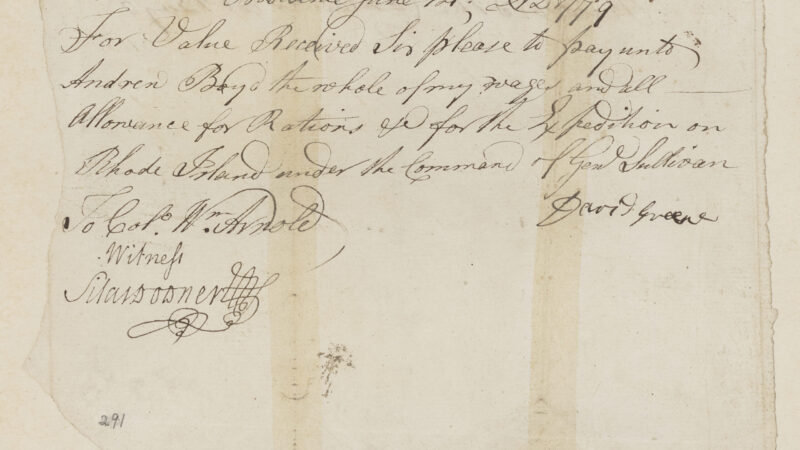 June 1779
For Value Received Sir please to pay unto
Andrew Boyd the whole of my wages and all
Allowance for Rations &c for the Expedition on
Rhode Island under the Command of Genl Sullivan
To Colo. Wm Arnold David Greene
Witness
291